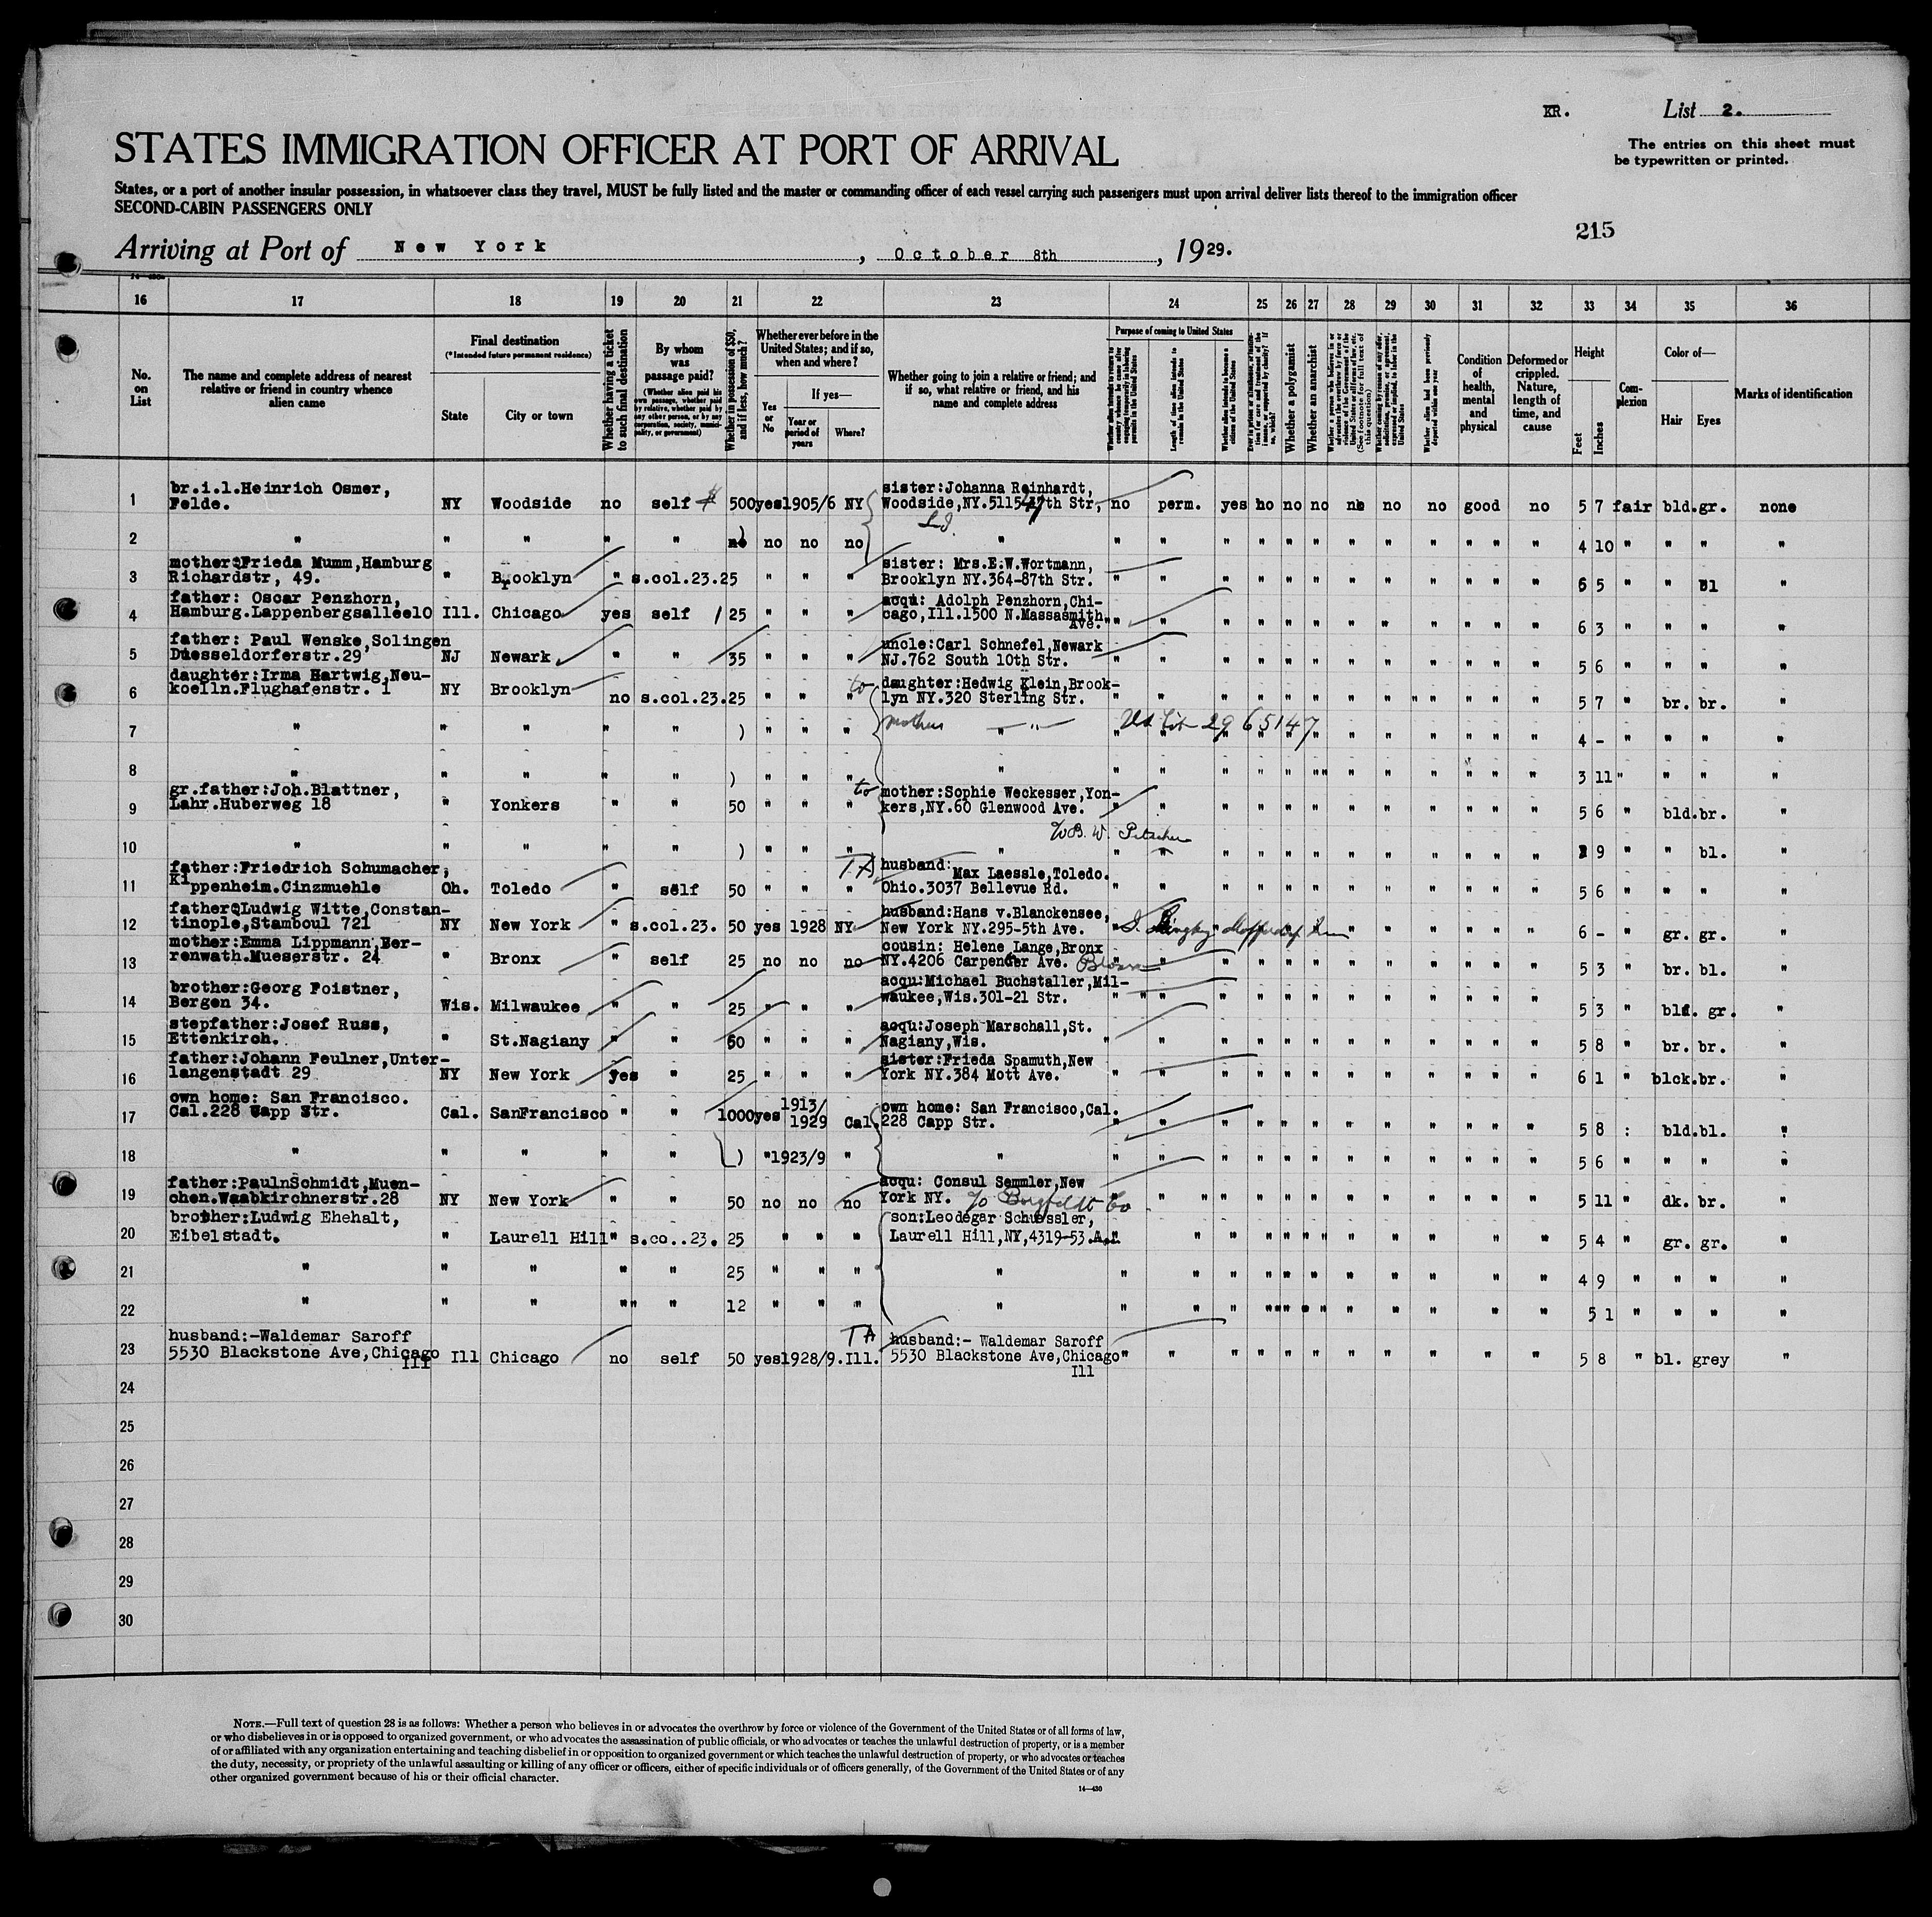 KR. List 2.
STATES IMMIGRATION OFFICER AT PORT OF ARRIVAL
The entries on this sheet must
be typewritten or printed.
States, or a port of another insular possession, in whatsoever class they travel, MUST be fully listed and the master or commanding officer of each vessel carrying such passengers must upon arrival deliver lists thereof to the immigration officer
SECOND-CABIN PASSENGERS ONLY
215
Arriving at Port of New York, October 8th, 1929.
16 17 18 19 20 21 22 23 24 25 26 27 28 29 30 31 32 33 34 35 36
No. on List
The name and complete address of nearest relative or friend in country whence alien came
Final destination
(*Intended future permanent residence)
State City or town
Whether having a ticket to such final destination
By whom was passage paid?
(Whether alien paid his own passage, whether paid by relative, whether paid by any other person, or by any corporation, society, municipality, or government)
Whether in possession of $50, and if less, how much?
Whether ever before in the United States; and if so, when and where?
Yes or No
If yes—
Year or period of years
Where?
Whether going to join a relative or friend; and if so, what relative or friend, and his name and complete address
Purpose of coming to United States
Length of time alien intends to remain in the United States
Whether alien intends to become a citizen of the United States
Whether a polygamist
Whether an anarchist
Whether alien had been previously deported within one year
Condition of health, mental and physical
Deformed or crippled. Nature, length of time, and cause
Height
Feet Inches
Complexion
Color of—
Hair Eyes
Marks of identification
1 br.i.l.Heinrich Osmer, sister:Johanna Reinhardt,
Felde. NY Woodside no self $ 500 yes 1905/6 NY Woodside,NY.5115 47th Str, no perm. yes no no no no no no good no 5 7 fair bld. gr. none
L.I.
2 " " " " " no) no no no " " " " " " " " " " " " " 4 10 " " " "
3 mother:Frieda Mumm,Hamburg sister: Mrs.E.W.Wortmann,
Richardstr, 49. " Brooklyn " s.col.23.25 " " " Brooklyn NY.364-87th Str. " " " " " " " " " " " " 6 5 " " bl "
4 father: Oscar Penzhorn, acqu: Adolph Penzhorn,Chi-
Hamburg.Lappenbergsallee10 Ill. Chicago yes self 25 " " " cago,Ill.1500 N.Massasmith
Ave. " " " " " " " " " " " " 6 3 " " " "
5 father: Paul Wenske,Solingen uncle:Carl Schnefel,Newark
Duesseldorferstr.29 NJ Newark " " 35 " " " NJ.762 South 10th Str. " " " " " " " " " " " " 5 6 " " " "
6 daughter:Irma Hartwig,Neu- to daughter:Hedwig Klein,Brook-
koelln.Flughafenstr. 1 NY Brooklyn no s.col.23.25 " " " lyn NY.320 Sterling Str. " " " " " " " " " " " " 5 7 " br. br. "
7 " " " " " ) " " " mother " " " " " " " " " " " " " 4 - " " " "
2965147
8 " " " " " ) " " " " " " " " " " " " " " " " " 3 11 " " " "
9 gr.father:Joh.Blattner, to mother:Sophie Weckesser,Yon-
Lahr.Huberweg 18 " Yonkers " " 50 " " " kers,NY.60 Glenwood Ave. " " " " " " " " " " " " 5 6 " bld. br. "
10 " " " " " ) " " " " " " " " " " " " " " " " " 9 " " bl. "
11 father:Friedrich Schumacher, TA husband:
Kippenheim.Cinzmuehle Oh. Toledo " self 50 " " " Max Laessle,Toledo.
Ohio.3037 Bellevue Rd. " " " " " " " " " " " " 5 6 " " " "
12 father:Ludwig Witte,Constan- husband:Hans v.Blanckensee,
tinople,Stamboul 721 NY New York " s.col.23. 50 yes 1928 NY New York NY.295-5th Ave. " " " " " " " " " " 6 - " gr. gr. "
13 mother:Emma Lippmann,Ber- cousin: Helene Lange,Bronx
renwath.Mueserstr. 24 " Bronx " self 25 no no no NY.4206 Carpenter Ave. " " " " " " " " " " " " 5 3 " br. bl. "
14 brother:Georg Foistner, acqu:Michael Buchstaller,Mil-
Bergen 34. Wis. Milwaukee " " 25 " " " waukee,Wis.301-21 Str. " " " " " " " " " " " " 5 3 " bld. gr. "
15 stepfather:Josef Russ, acqu:Joseph Marschall,St.
Ettenkirch. " St.Nagiany " " 50 " " " Nagiany,Wis. " " " " " " " " " " " " 5 8 " br. br. "
16 father:Johann Feulner,Unter- sister:Frieda Spamuth,New
langenstadt 29 NY New York yes " 25 " " " York NY.384 Mott Ave. " " " " " " " " " " " " 6 1 " blck. br. "
17 own home: San Francisco. 1913/ own home: San Francisco,Cal.
Cal.228 Capp Str. Cal. SanFrancisco " " 1000 yes 1929 Cal. 228 Capp Str. " " " " " " " " " " " " 5 8 : bld. bl. "
18 " " " " " ) " 1923/9 " " " " " " " " " " " " " " " 5 6 " " " "
19 father:PaulnSchmidt,Muen- acqu: Consul Semmler,New
chen.Waabkirchnerstr.28 NY New York " " 50 no no no York NY. c/o Borgfeldt Co " " " " " " " " " " " 5 11 " dk. br. "
20 brother:Ludwig Ehehalt, son:Leodegar Schuessler,
Eibelstadt. " Laurell Hill " s.co..23. 25 " " " Laurell Hill,NY,4319-53 " " " " " " " " " " " 5 4 " gr. gr. "
21 " " " " " 25 " " " " " " " " " " " " " " " " 4 9 " " " "
22 " " " " " 12 " " " " " " " " " " " " " " " " 5 1 " " " "
23 husband:-Waldemar Saroff TA husband:- Waldemar Saroff
5530 Blackstone Ave,Chicago Ill Ill Chicago no self 50 yes 1928/9. Ill. 5530 Blackstone Ave,Chicago
Ill " " " " " " " " " " " " 5 8 " bl. grey "
24
25
26
27
28
29
30
NOTE.—Full text of question 28 is as follows: Whether a person who believes in or advocates the overthrow by force or violence of the Government of the United States or of all forms of law,
or who disbelieves in or is opposed to organized government, or who advocates the assassination of public officials, or who advocates or teaches the unlawful destruction of property, or is a member
of or affiliated with any organization entertaining and teaching disbelief in or opposition to organized government or which teaches the unlawful destruction of property, or who advocates or teaches
the duty, necessity, or propriety of the unlawful assaulting or killing of any officer or officers, either of specific individuals or of officers generally, of the Government of the United States or of any
other organized government because of his or their official character.
14—430